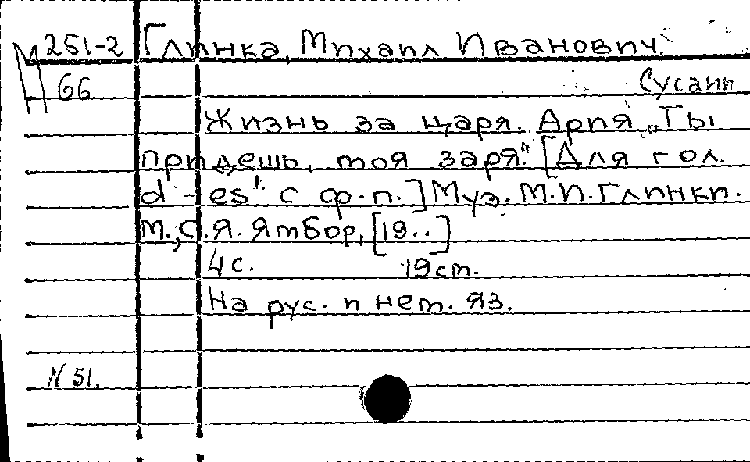 М 251-2 Глинка, Михаил Иванович.
66 Сусанин
Жизнь за царя. Ария „Ты
придешь, моя заря". [Для гол.
d - es" с ф-п.] Муз. М.И. Глинки.
М., С.Я. Ямбор, [19..]
4 с. 19 ст.
На рус. и нем. яз.
N 51.